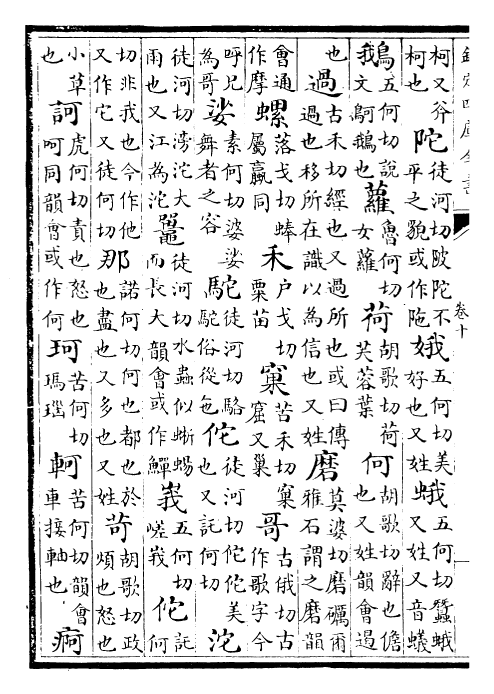 欽定四庫全書
卷十
柯又斧柯也陀徒河切陂陀不平之貌或作陁娥五何切美好也又姓蛾五何切蠶蛾又姓又音蟻
鵝五何切說文鴚鵝也蘿魯何切女蘿荷胡歌切荷芙蓉葉何胡歌切辭也儋也又姓韻會過
也過古禾切經也又過所也或曰傳過也移所在識以為信也又姓磨莫婆切磨礪爾雅石謂之磨韻
會通作摩螺落戈切蜯屬蠃同禾户戈切粟苗窠苦禾切窠窟又巢哥古俄切古作歌字今
呼兄為哥娑素何切婆娑舞者之容駝徒河切駱駝俗從包佗徒河切佗佗美也又託何切沱
徒河切滂沱大雨也又江為沱鼉徒河切水蟲似蜥蜴而長大韻會或作鱓峩五何切嵯峩佗託何
切非我也今作他又作它又徒何切那諾何切何也都也於也盡也又多也又姓苛胡歌切政煩也怒也
小草也訶虎何切責也怒也呵同韻會或作何珂苦何切瑪瑙軻苦何切韻會車接軸也痾